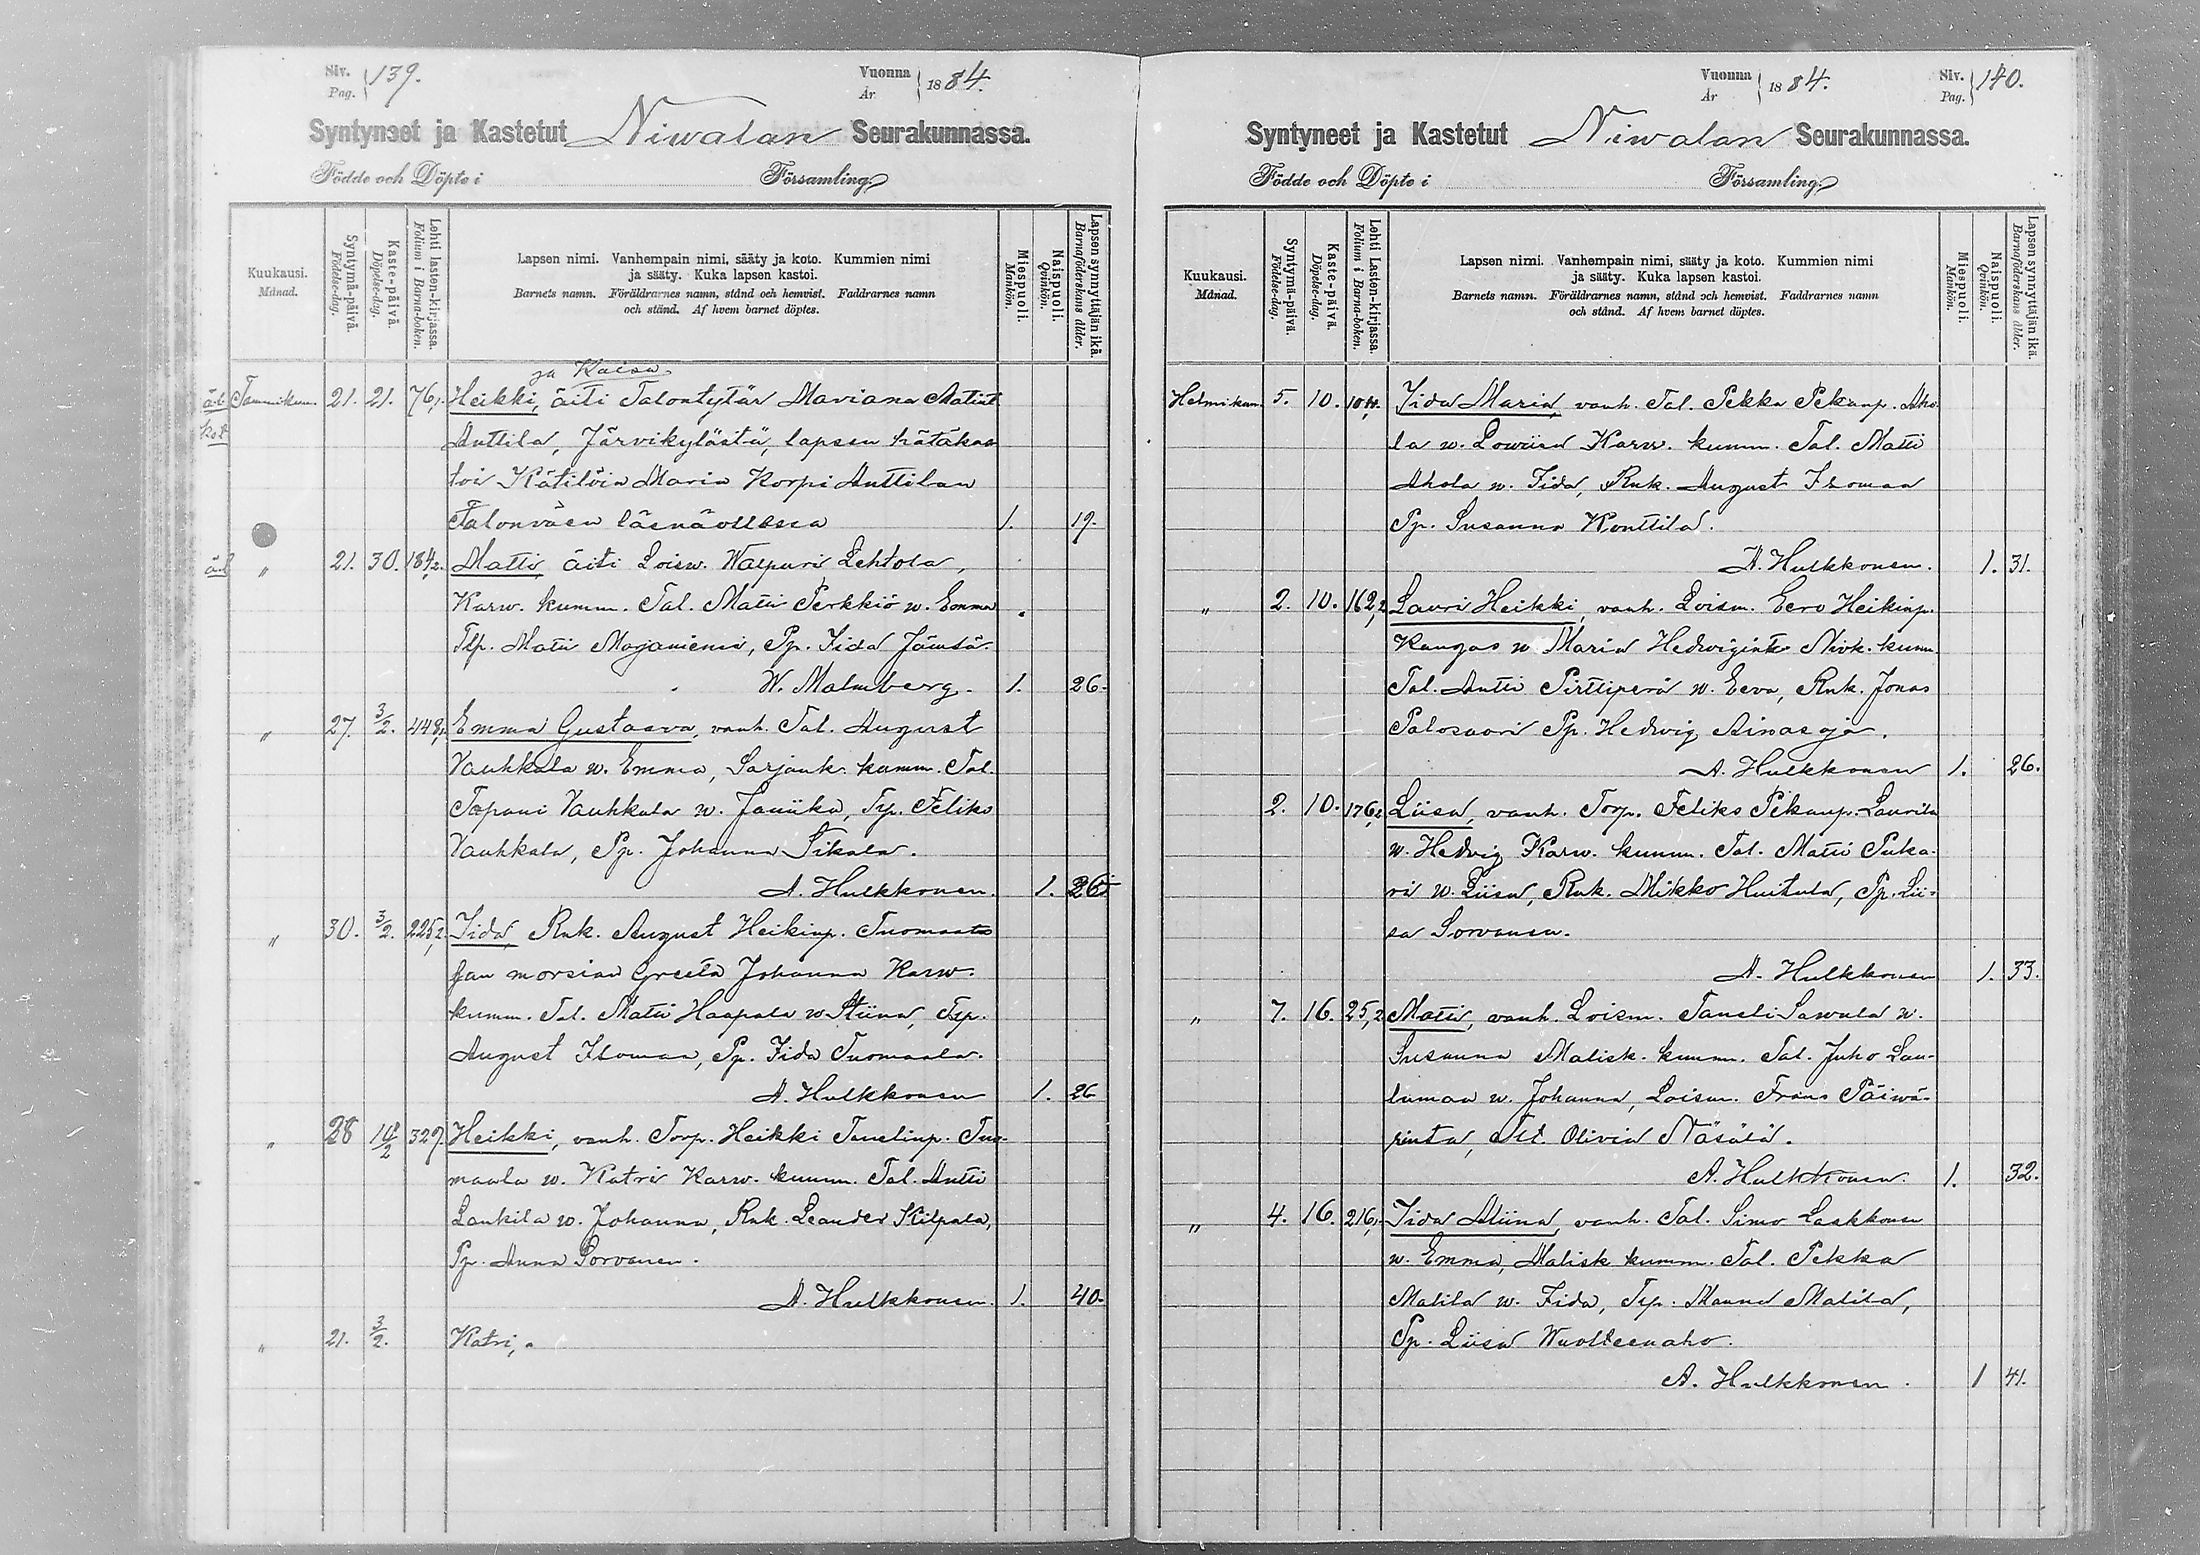 Siv. 139.
Pag.
Vuonna 1884.
År
Syntyneet ja Kastetut Niwalan Seurakunnassa.
Födde och Döpte i Församling
Kuukausi.
Månad.
Syntymä-päivä.
Födelse-dag.
Kaste-päivä.
Döpelse-dag.
Lehti lasten-kirjassa.
Folium i Barna-boken.
Lapsen nimi. Vanhempain nimi, sääty ja koto. Kummien nimi
ja sääty. Kuka lapsen kastoi.
Barnets namn. Föräldrarnes namn, stånd och hemvist. Faddrarnes namn
och stånd. Af hvem barnet döptes.
Miespuoli.
Mankön.
Naispuoli.
Qvinkön.
Lapsen synnyttäjän ikä.
Barnaföderskans ålder.
ja Kaisa
ä.l. Tammikuu. 21. 21. 76,1 Heikki, äiti Talontytär Mariana Matint
Anttila, Järvikylästä, lapsen hätäkas
toi Kätilöin Maria Korpi Anttilan
Talonväen läsnäollessa 1. 19.
ä.l. " 21. 30. 184,2. Matti, äiti Loisw. Walpuri Lehtola,
Karw. kumm. Tal. Matti Perkkiö w. Emma
Tlp. Matti Mojaniemi, Pp. Iida Jämsä.
W. Malmberg. 1. 26.
" 27. 3/2. 448, Emma Gustaava, vanh. Tal. August
Vauhkala w. Emma, Sarjank. kumm. Tal.
Tapani Vauhkala w. Janiika, Tp. Feliks
Vauhkala, Pp. Johanna Sikala.
A. Hulkkonen. 1. 26
" 30. 3/2. 225,2. Iida, Rnk. August Heikinp. Tuomaala
jan morsian Greeta Johanna Karw.
kumm. Tal. Matti Haapala w. Stiina, Tp.
August Isomaa, Pp. Iida Tuomaala.
A. Hulkkonen 1. 26
" 28 10/2 329. Heikki, vanh. Torp. Heikki Tanelinp. Tuo-
maala w. Katri Karw. kumm. Tal. Antti
Lankila w. Johanna, Rnk. Leander Kilpala,
Pp. Anna Sorvanen.
A. Hulkkonen. 1. 40.
" 21. 3/2. Katri,
Vuonna 1884.
År
Siv. 140.
Pag.
Syntyneet ja Kastetut Niwalan Seurakunnassa.
Födde och Döpte i Församling
Kuukausi.
Månad.
Syntymä-päivä.
Födelse-dag.
Kaste-päivä.
Döpelse-dag.
Lehti Lasten-kirjassa.
Folium i Barna-boken.
Lapsen nimi. Vanhempain nimi, sääty ja koto. Kummien nimi
ja sääty. Kuka lapsen kastoi.
Barnets namn. Föräldrarnes namn, stånd och hemvist. Faddrarnes namn
och stånd. Af hvem barnet döptes.
Miespuoli.
Mankön.
Naispuoli.
Qvinkön.
Lapsen synnyttäjän ikä.
Barnaföderskans ålder.
Helmikuu. 5. 10. Iida Maria, vanh. Tal. Pekka Pekanp. Aho-
la w. Lowiisa Karw. kumm. Tal. Matti
Ahola w. Iida, Rnk. August Isomaa
Pp. Susanna Konttila.
A. Hulkkonen. 1. 31.
" 2. 10. 162,2 Lauri Heikki, vanh. Loism. Eero Heikinp.
Kangas w. Maria Hedwigint. Nivk. kumm.
Tal. Antti Pirttiperä w. Eeva, Rnk. Jonas
Palosaari Pp. Hedwig Ainasoja.
A. Hulkkonen 1. 26.
2. 10. 176,2 Liisa, vanh. Torp. Feliks Pekanp. Laurila
w. Hedvig Karw. kumm. Tal. Matti Puka-
ri w. Liisa, Rnk. Mikko Huitula, Pp. Lii-
sa Sorvanen.
A. Hulkkonen 1. 33.
" 7. 16. 25,2 Matti, vanh. Loism. Taneli Sawula w.
Susanna Malisk. kumm. Tal. Juho Lau-
lumaa w. Johanna, Loism. Frans Päiwä-
rinta, Olivia Näsälä.
A. Hulkkonen. 1. 32.
" 4. 16. 216, Iida Miina, vanh. Tal. Simo Laakkonen
w. Emma, Malisk. kumm. Tal. Pekka
Malila w. Iida, Tp. Manne Malila,
Pp. Liisa Wuolteenaho.
A. Hulkkonen. 1 41.